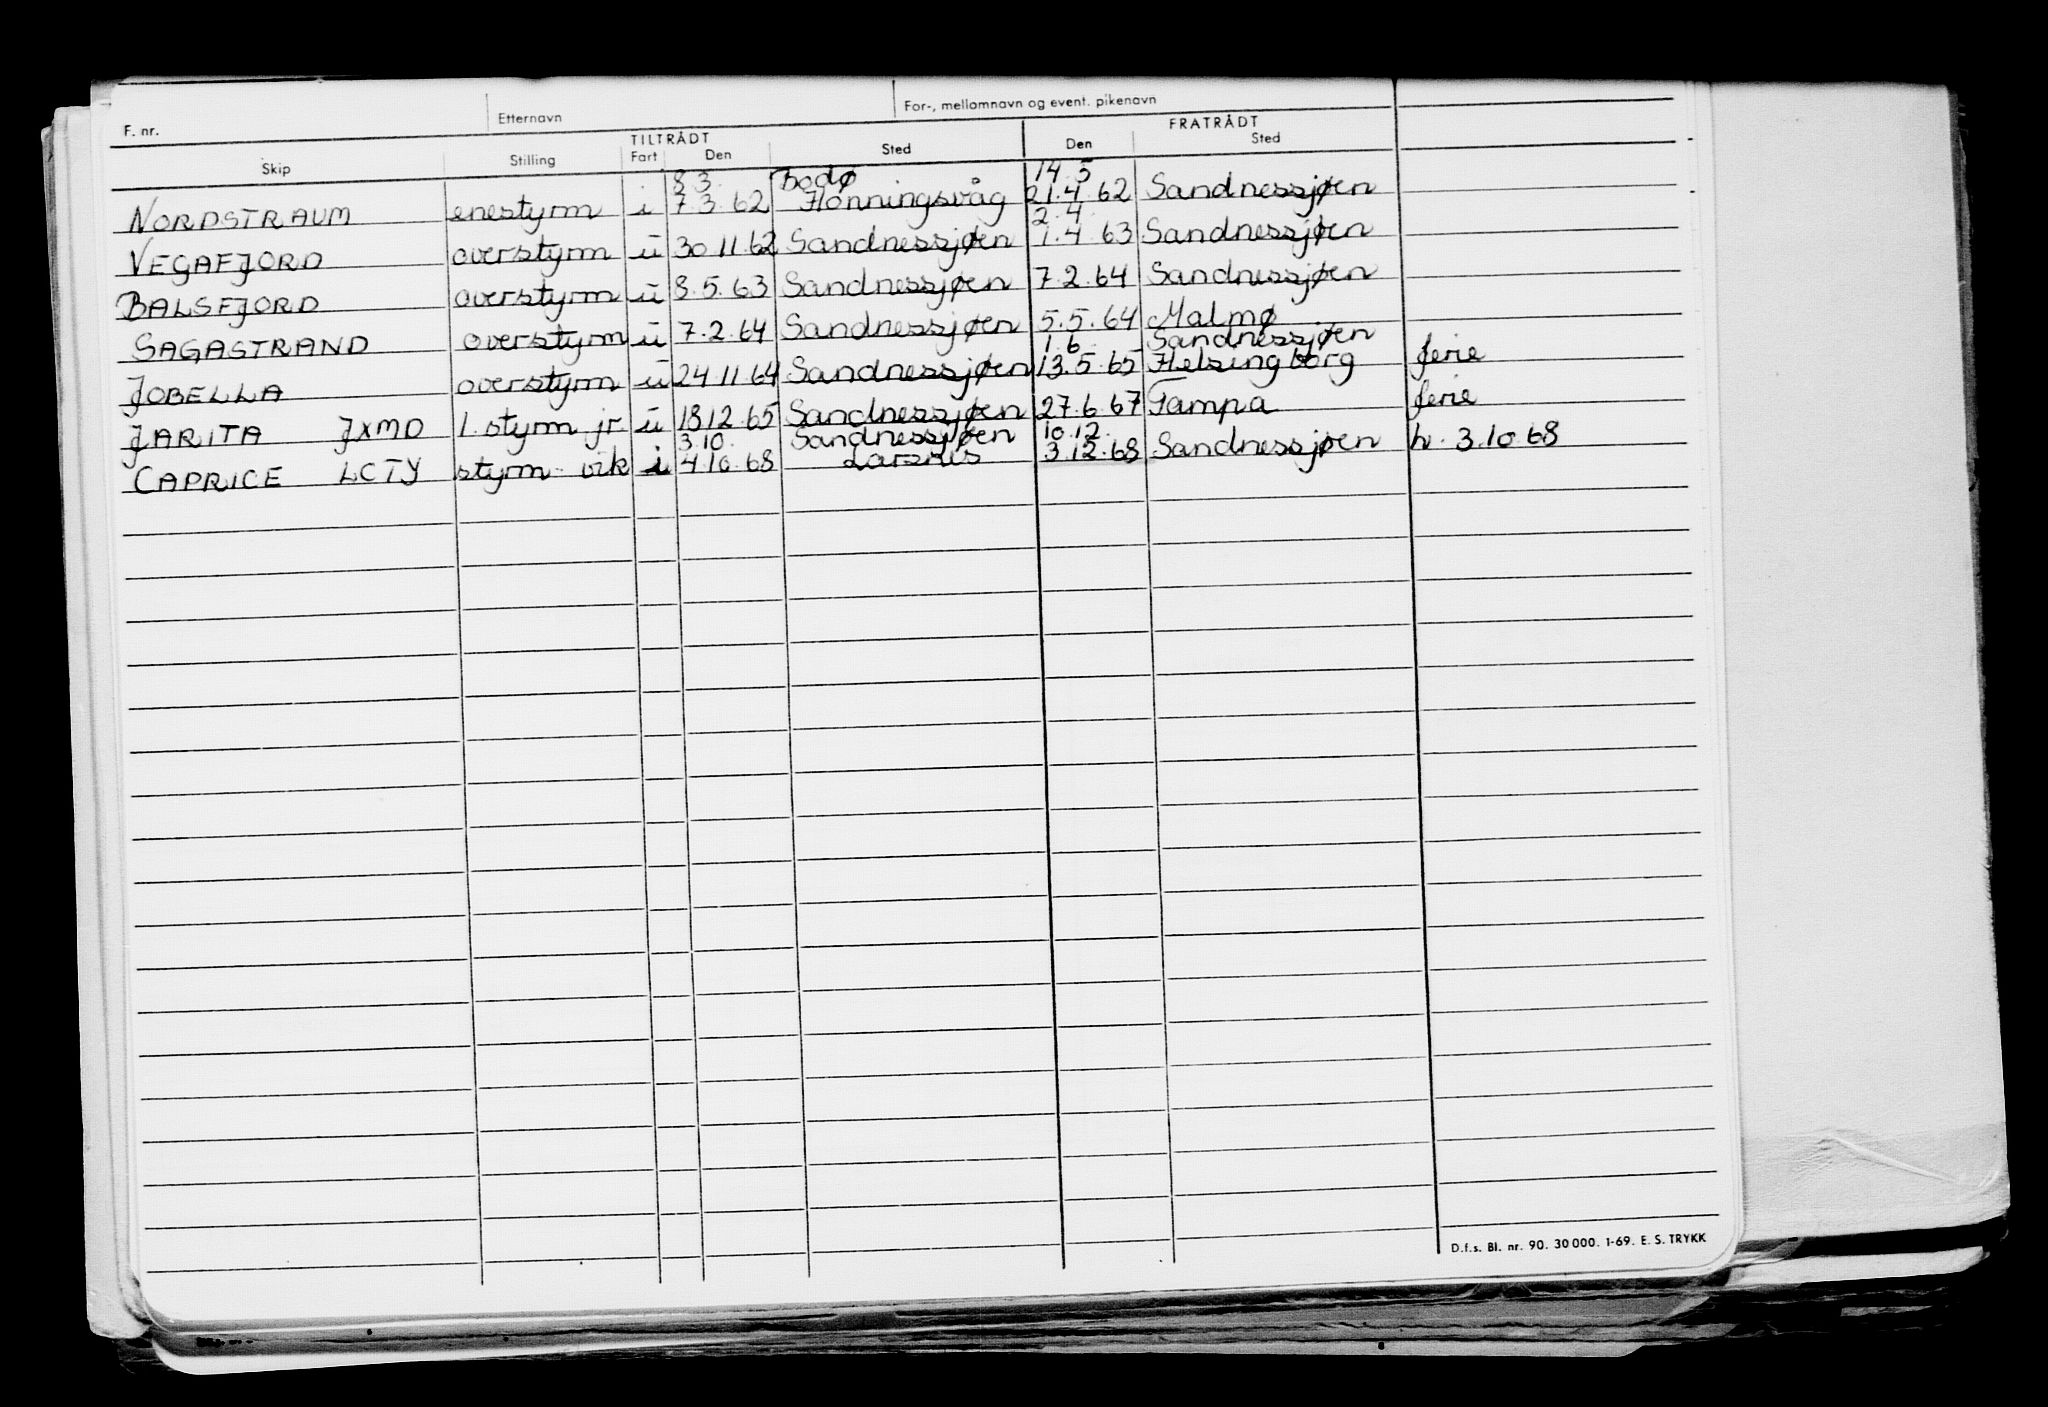 F. nr. Etternavn For-, mellomnavn og event. pikenavn
TILTRÅDT FRATRÅDT
Skip Stilling Fart Den Sted Den Sted
8.3. Bodø 14.5
NORDSTRAUM enestyrm i 7.3.62 Honningsvåg 21.4.62 Sandnessjøen
2.4
VEGAFJORD overstyrm u 30.11.62 Sandnessjøen 1.4.63 Sandnessjøen
BALSFJORD overstyrm u 8.5.63 Sandnessjøen 7.2.64 Sandnessjøen
SAGASTRAND overstyrm u 7.2.64 Sandnessjøen 5.5.64 Malmø
1.6. Sandnessjøen
JOBELLA overstyrm u 24.11.64 Sandnessjøen 13.5.65 Helsingborg ferie
JARITA JXMD 1. styrm jr u 18.12.65 Sandnessjøen 27.6.67 Tampa ferie
3.10. Sandnessjøen 10.12.
CAPRICE LCTY styrm vik i 4.10.68 Larsnes 3.12.68 Sandnessjøen h. 3.10.68
D.f.s. Bl. nr. 90. 30 000. 1-69. E. S. TRYKK